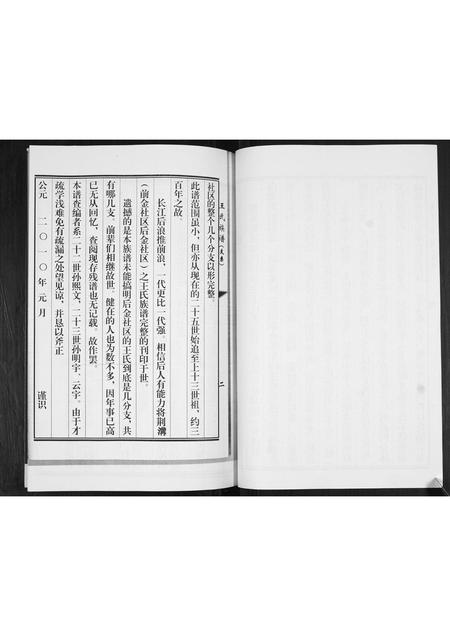 王氏族谱
二
社区的整个几个分支以形完整。
此谱范围虽小，但亦从现在的二十五世始追至上十三世祖，约三
百年之故。
长江后浪推前浪，一代更比一代强。相信后人有能力将荆溝
（前金社区后金社区）之王氏族谱完整的刊印于世。
遗撼的是本族谱未能搞明后金社区的王氏到底是几分支，共
有哪几支。前辈们相继故世。健在的人也为数不多，因年事已高
已无从回忆，查阅现存残谱也无记载。故作罢。
本谱查编者系二十二世孙熙文，二十三世孙明宇、云字。由于才
疏学浅难免有疏漏之处望见谅，并恳以斧正
谨识
公元 二〇一〇年元月